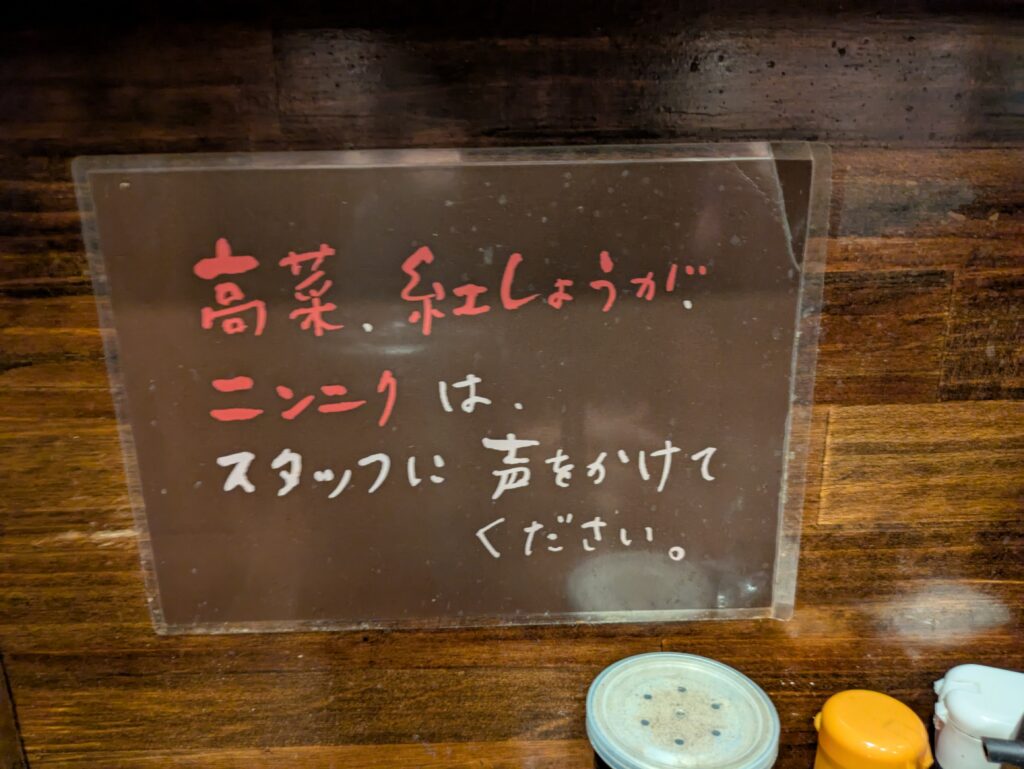 高菜、紅しょうが、
ニンニクは、
スタッフに声をかけて
ください。